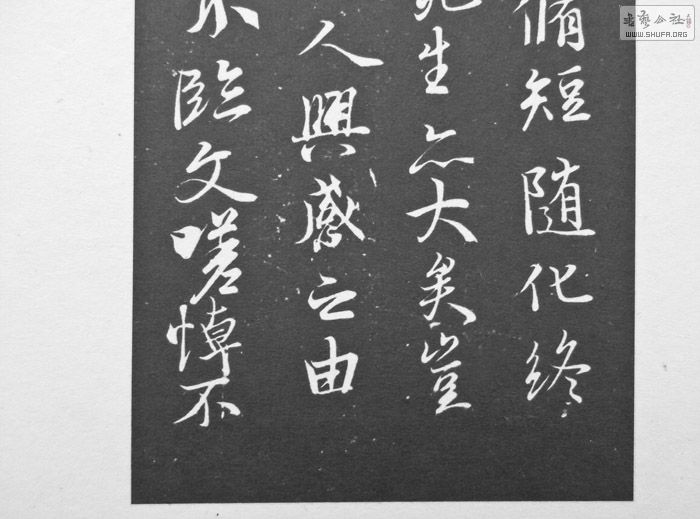 脩短随化終
死生亦大矣豈
人興感之由
不臨文嗟悼不
書藝公社
WWW.SHUFA.ORG